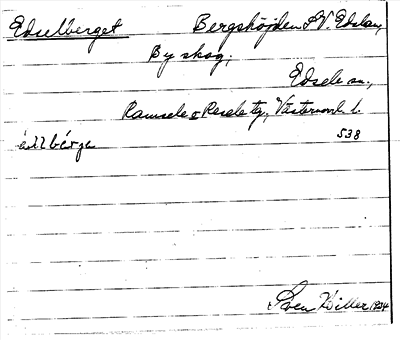 Edselberget Bergshöjden S.V. Edslan,
By skog,
Edsele sn.,
Ramsele o Resele tg, Västernorrl. l.
538
Sven Willer 1934